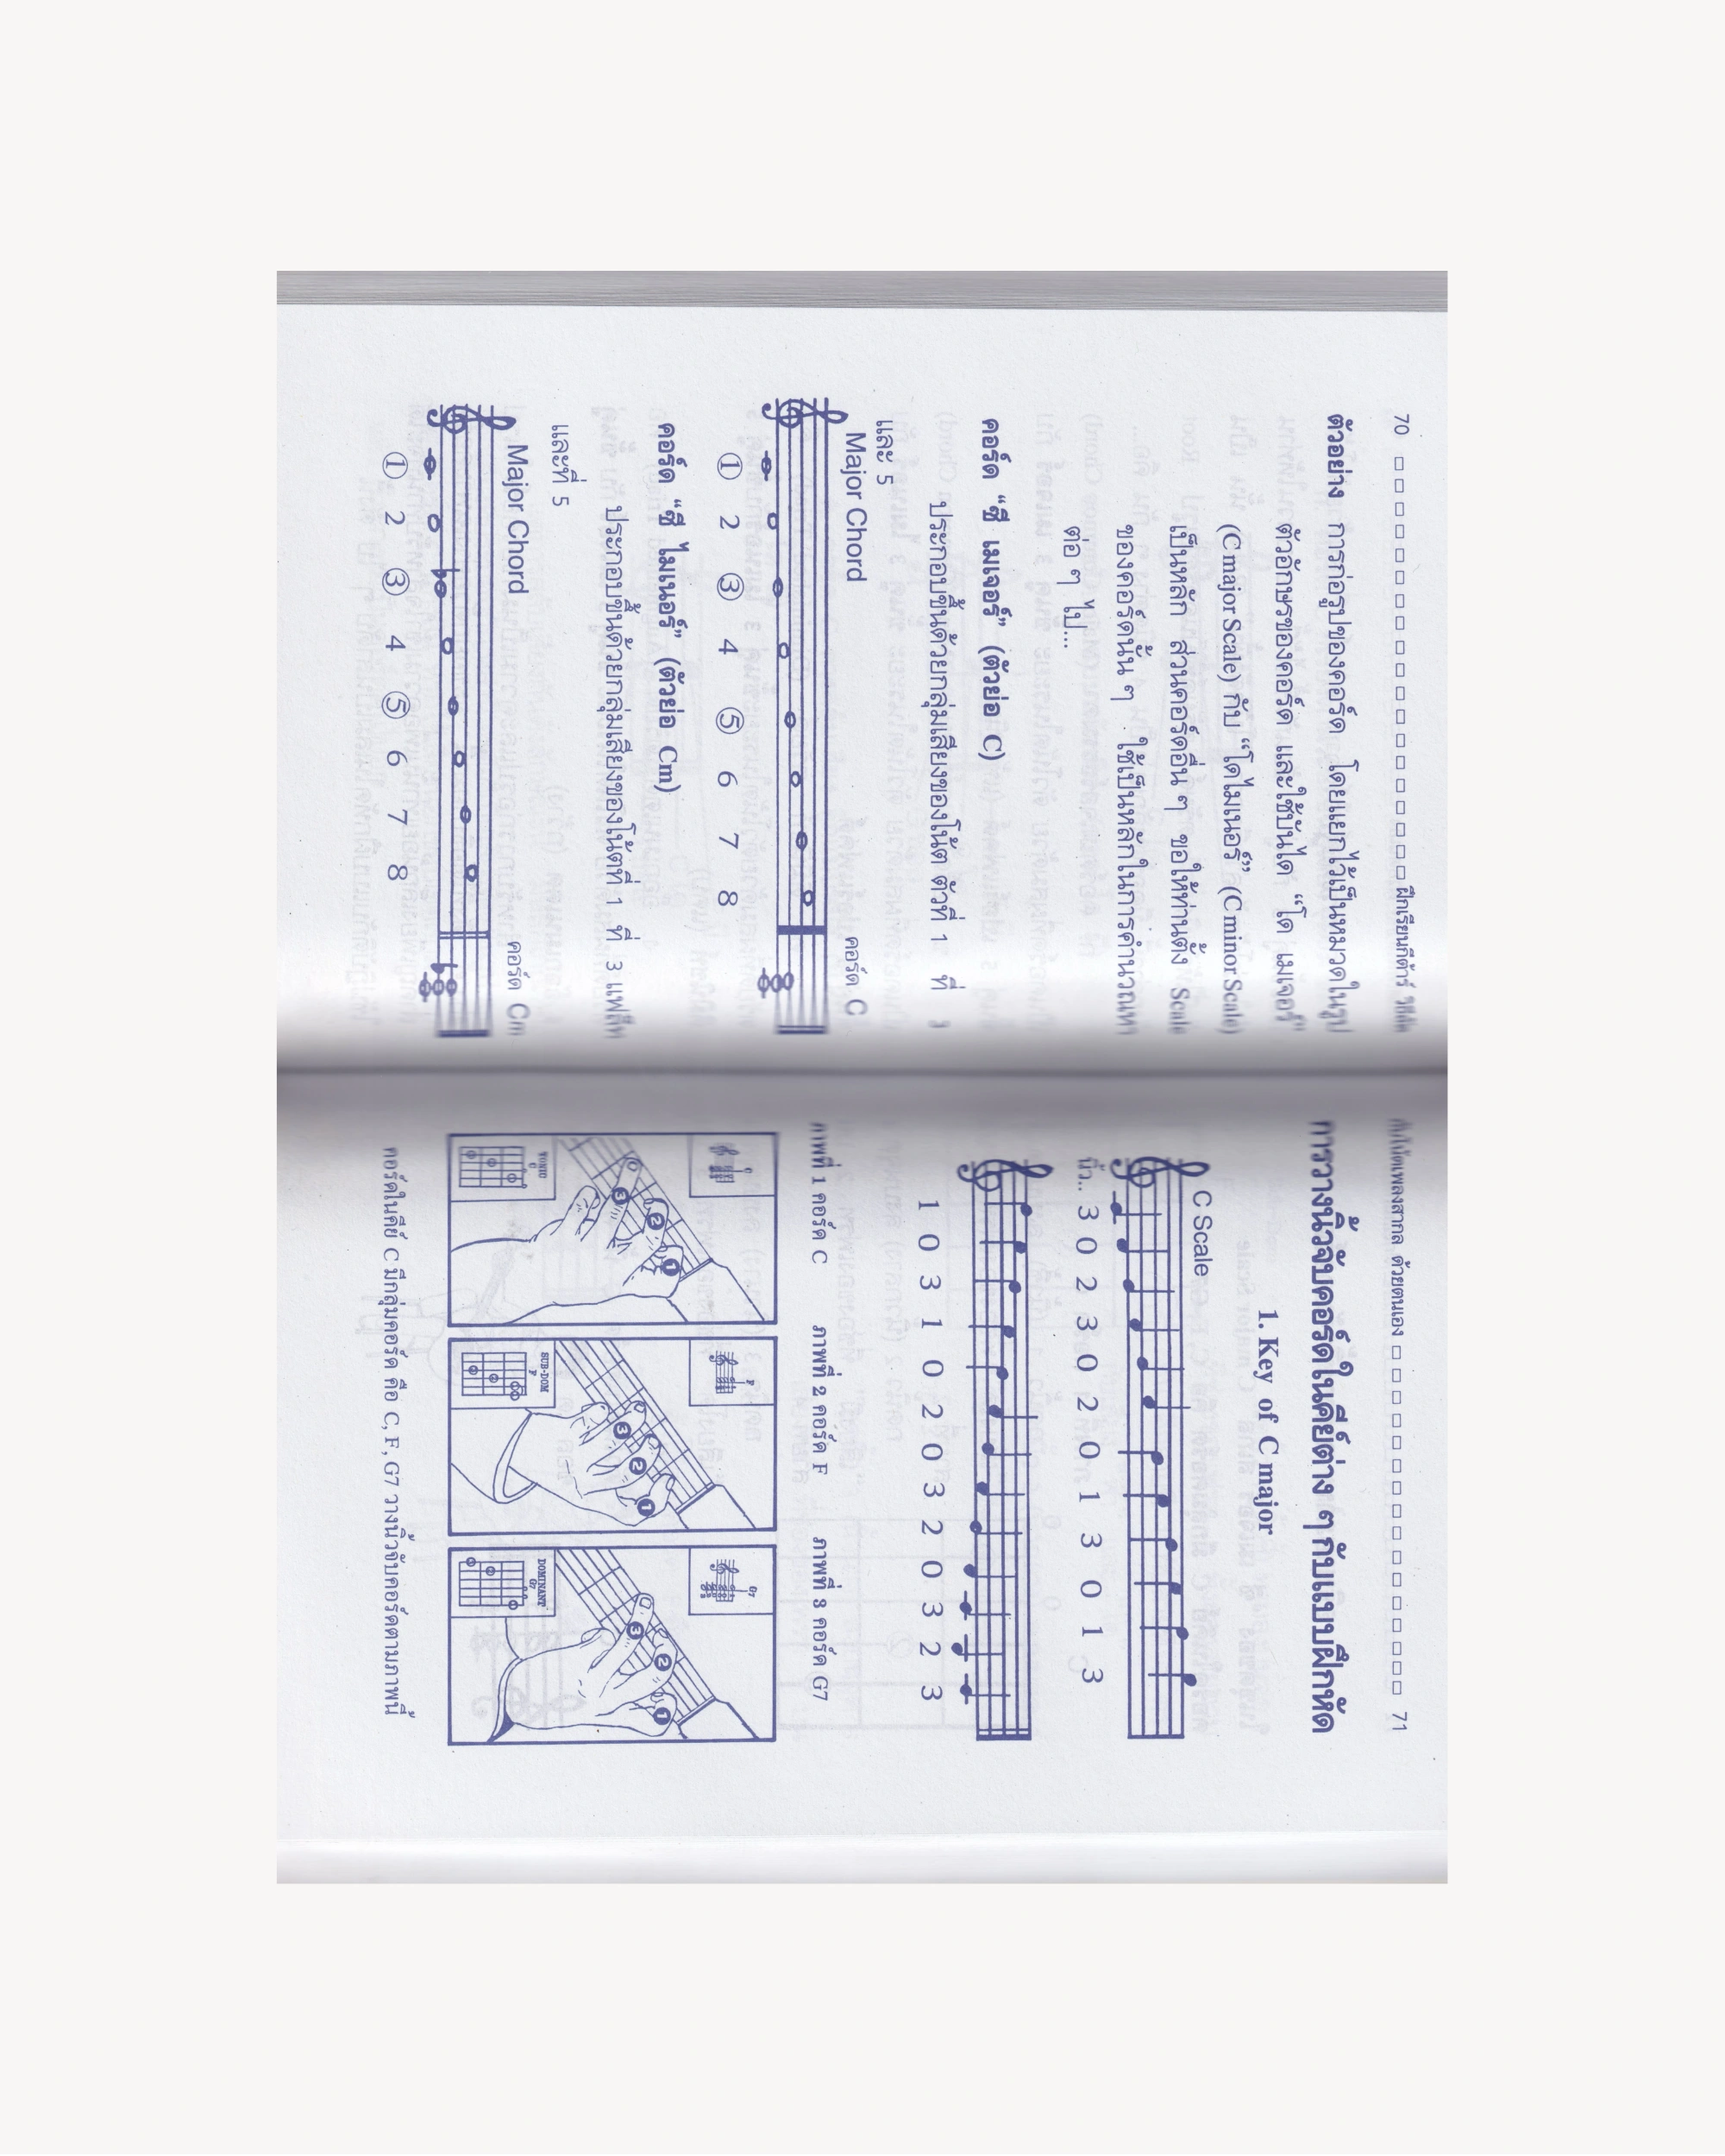 70 ฝึกเรียนกีต้าร์
ตัวอย่าง การก่อรูปของคอร์ด โดยแยกไว้เป็นหมวดในรูป
ตัวอักษรของคอร์ด และใช้บันได “โด เมเจอร์”
(C major Scale) กับ “โดไมเนอร์” (C minor Scale)
เป็นหลัก ส่วนคอร์ดอื่น ๆ ขอให้ท่านตั้ง Scale
ของคอร์ดนั้น ๆ ใช้เป็นหลักในการคำนวณหา
ต่อ ๆ ไป...
คอร์ด “ซี เมเจอร์” (ตัวย่อ C)
ประกอบขึ้นด้วยกลุ่มเสียงของโน้ต ตัวที่ 1 ที่ 3
และ 5
Major Chord คอร์ด C
① 2 ③ 4 ⑤ 6 7 8
คอร์ด “ซี ไมเนอร์” (ตัวย่อ Cm)
ประกอบขึ้นด้วยกลุ่มเสียงของโน้ตที่ 1 ที่ 3 แฟล็ท
และที่ 5
Major Chord คอร์ด Cm
① 2 ③ 4 ⑤ 6 7 8
เพลงสากล ด้วยตนเอง 71
ตารางนิ้วจับคอร์ดในคีย์ต่าง ๆ กับแบบฝึกหัด
1. Key of C major
C Scale
นิ้ว.. 3 0 2 3 0 2 0 1 3 0 1 3
1 0 3 1 0 2 0 3 2 0 3 2 3
ภาพที่ 1 คอร์ด C ภาพที่ 2 คอร์ด F ภาพที่ 3 คอร์ด G7
C F G7
3 2 1 3 2 1 3 2 1
TONIC SUB-DOM DOMINANT
C F G7
คอร์ดในคีย์ C มีกลุ่มคอร์ด คือ C, F, G7 วางนิ้วจับคอร์ดตามภาพนี้